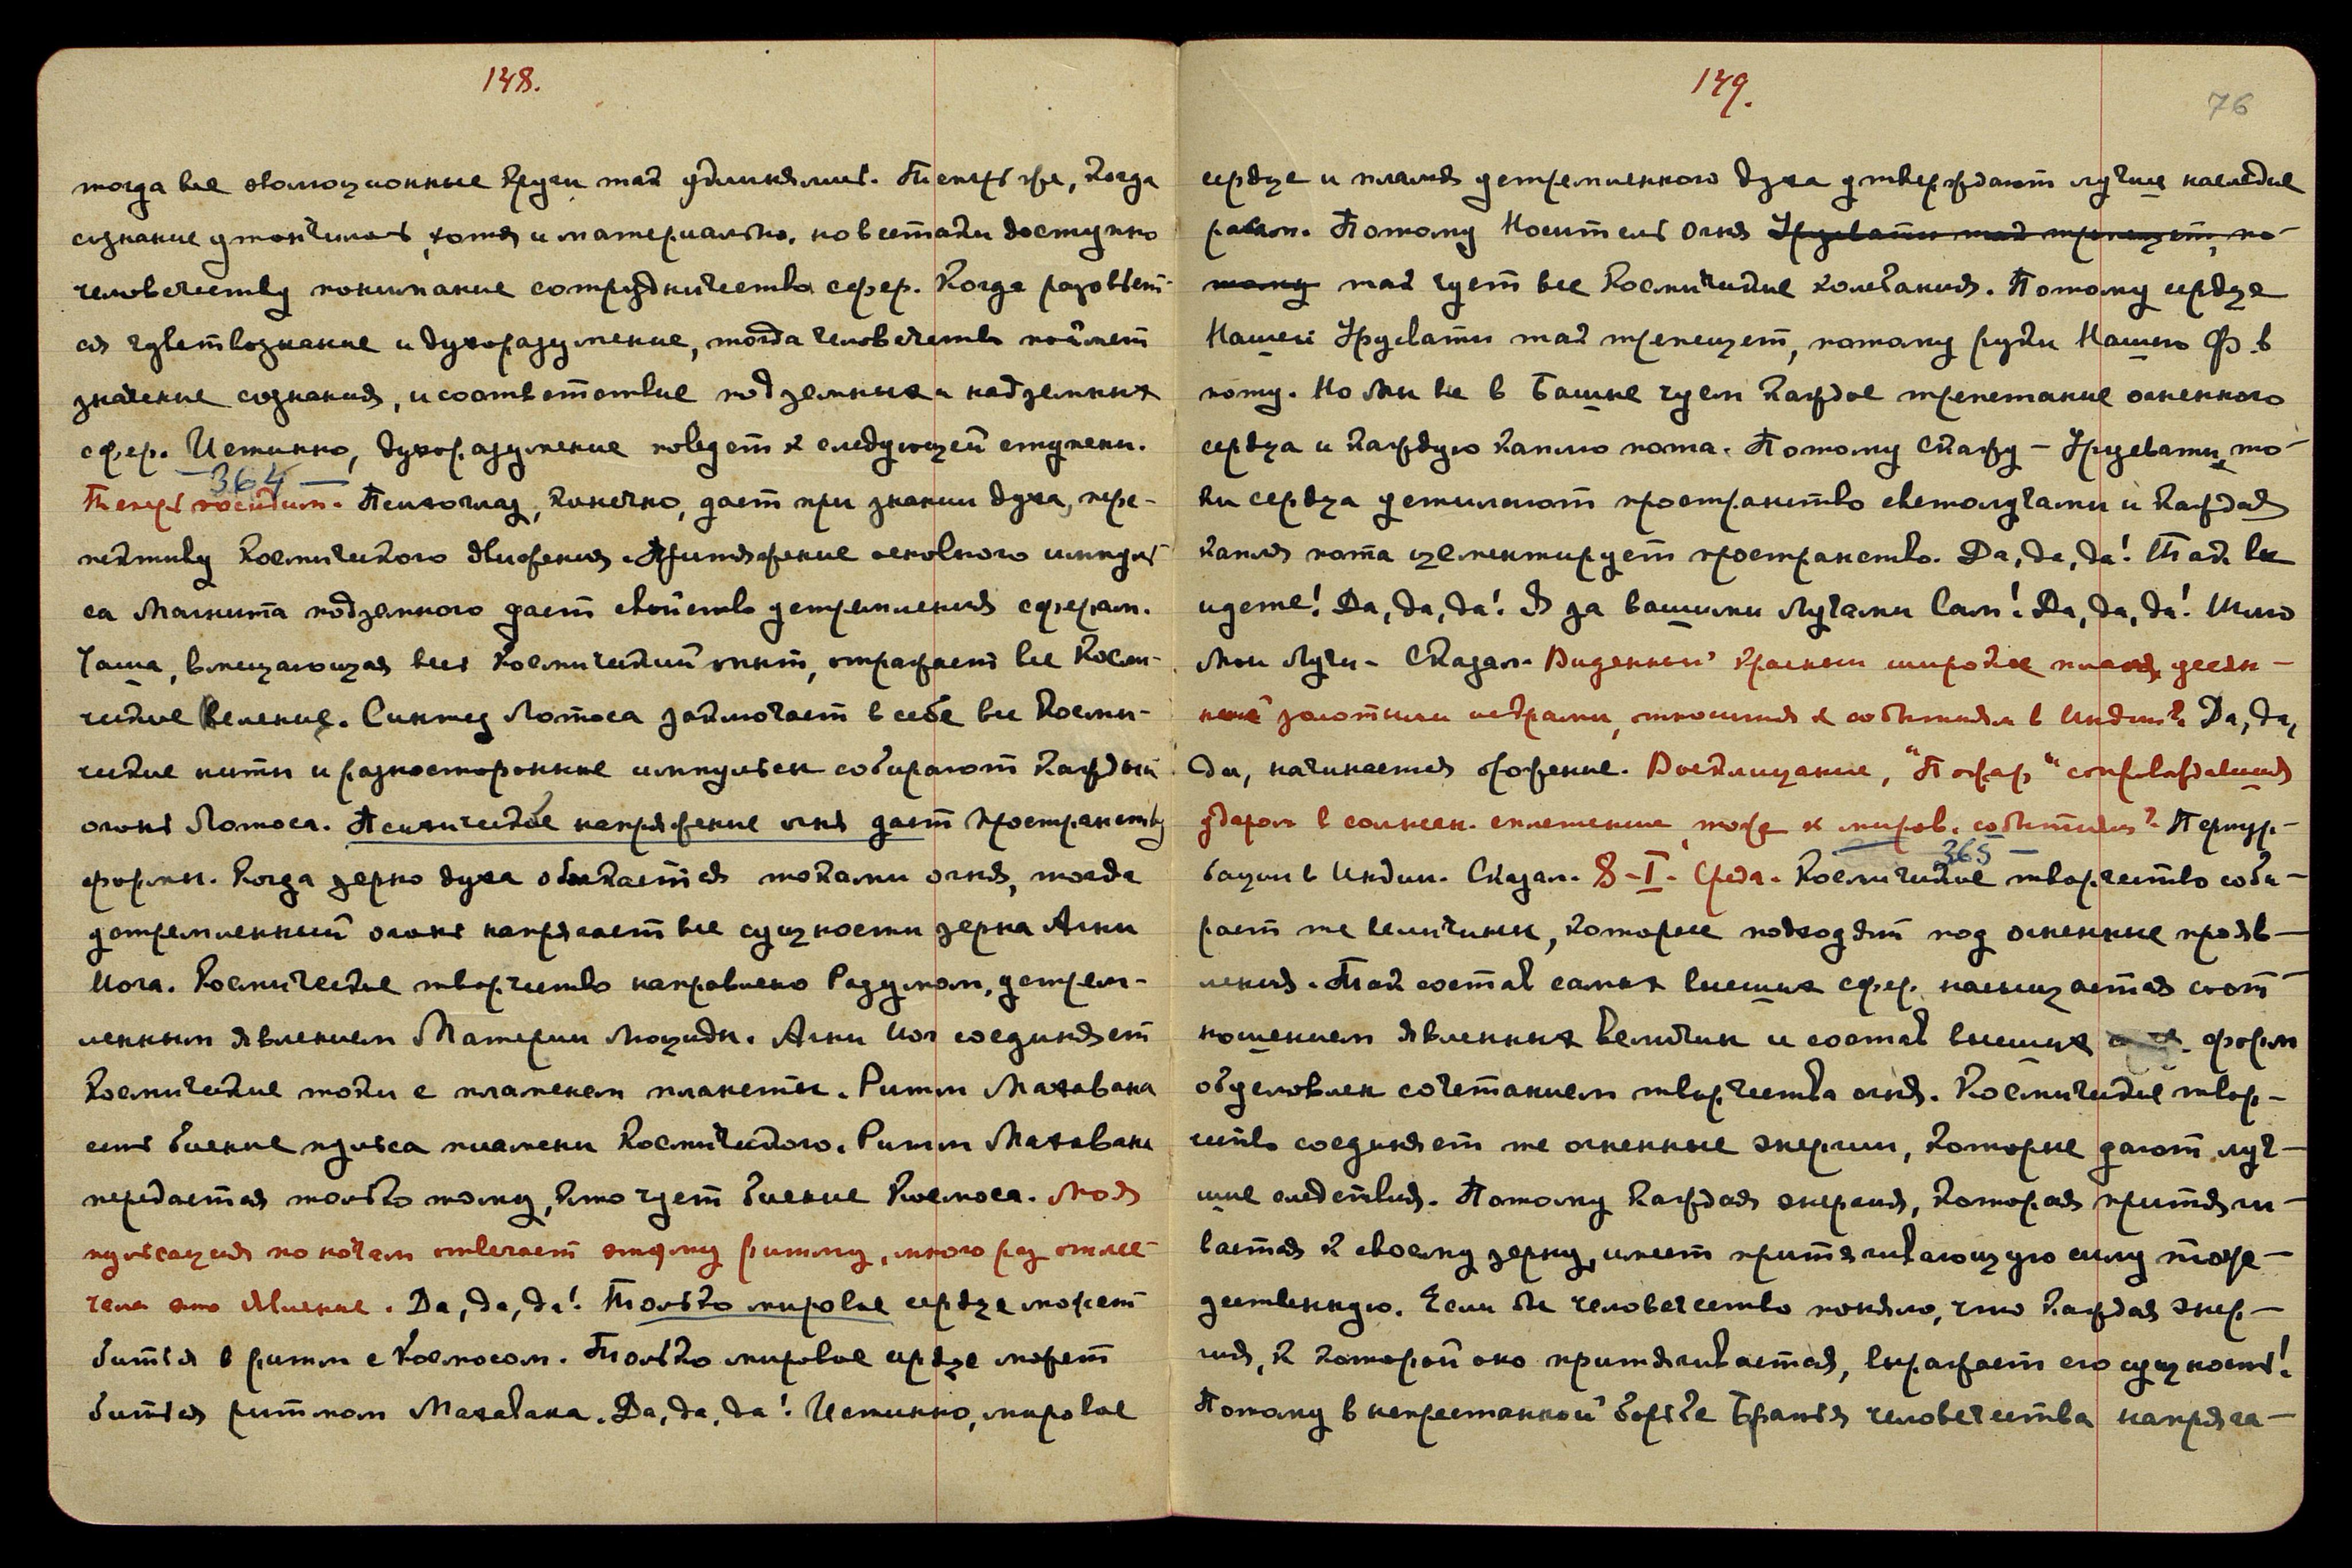 148.
тогда все эволюционные круги так удлинялись. Теперь же, когда
сознание утончилось, хотя и материально, но всетаки доступно
человечеству понимание сотрудничества сфер. Когда разовьет-
ся чувствознание и духоразумение, тогда человечество поймет
значение сознания, и соответствие подземных и надземных
сфер. Истинно, духоразумение поведет к следующей ступени.
364 —
Теперь посидим. Психоглаз, конечно, дает при знании духа, перс-
пективу Космического движения. Притяжение основного импуль-
са Магнита подземного дает свойство устремления сферам.
Чаша, вмещающая весь Космический опыт, отражает все Косми-
ческие веления. Синтез Лотоса заключает в себе все Косми-
ческие нити и разносторонние импульсы собирают каждый
огонь Лотоса. Психическое напряжение огня дает пространству
формы. Когда зерно духа обвивается токами огня, тогда
устремленный огонь напрягает все сущности зерна Агни
Йога. Космическое творчество направлено Разумом, устрем-
ленным явлением Материи Люциды. Агни Йог соединяет
Космические токи с пламенем планеты. Ритм Махавана
есть биение пульса пламени Космического. Ритм Махавана
передается только тому, кто чует биение Космоса. Моя
пульсация по ночам отвечает этому ритму, много раз отме-
чала это явление. Да, да, да! Только мировое сердце может
биться в ритм с Космосом. Только мировое сердце может
биться ритмом Махавана. Да, да, да! Истинно, мировое
149.
76
сердце и пламя устремленного духа утверждают лучшее наследие
расам. Потому Носитель Огня Урусвати так трепещет, по-
тому так чует все Космические колебания. Потому сердце
Нашей Урусвати так трепещет, потому руки Нашего Ф. в
поту. Но Мы все в Башне чуем каждое трепетание огненного
сердца и каждую каплю пота. Потому скажу — Урусвати, то-
ки сердца устилают пространство светолучами и каждая
капля пота цементирует пространство. Да, да, да! Так вы
идете! Да, да, да! Я за вашими Лучами Сам! Да, да, да! Шлю
Мои Лучи. Сказал. Виденный красный широкое пламя, усеян-
ное золотыми искрами, относится к событиям в Индии? Да, да,
да, начинается брожение. Восклицание, "Пожар" сопровождавшееся
ударом в солнечн. сплетение, тоже к миров. событиям? Пертур-
365 —
бации в Индии. Сказал. 8-I- Среда. Космическое творчество соби-
рает те величины, которые подходят под огненные прояв-
ления. Так состав самых высших сфер насыщается соот-
ношением явленных величин и состав высших форм
обусловлен сочетанием творчества огня. Космическое твор-
чество соединяет те огненные энергии, которые дают луч-
шие следствия. Потому каждая энергия, которая притяги-
вается к своему зерну, имеет притягивающую силу тоже-
дественную. Если бы человечество поняло, что каждая энер-
гия, к которой оно притягивается, выражает его сущность!
Потому в непрестанной борьбе Братья человечества напряга-